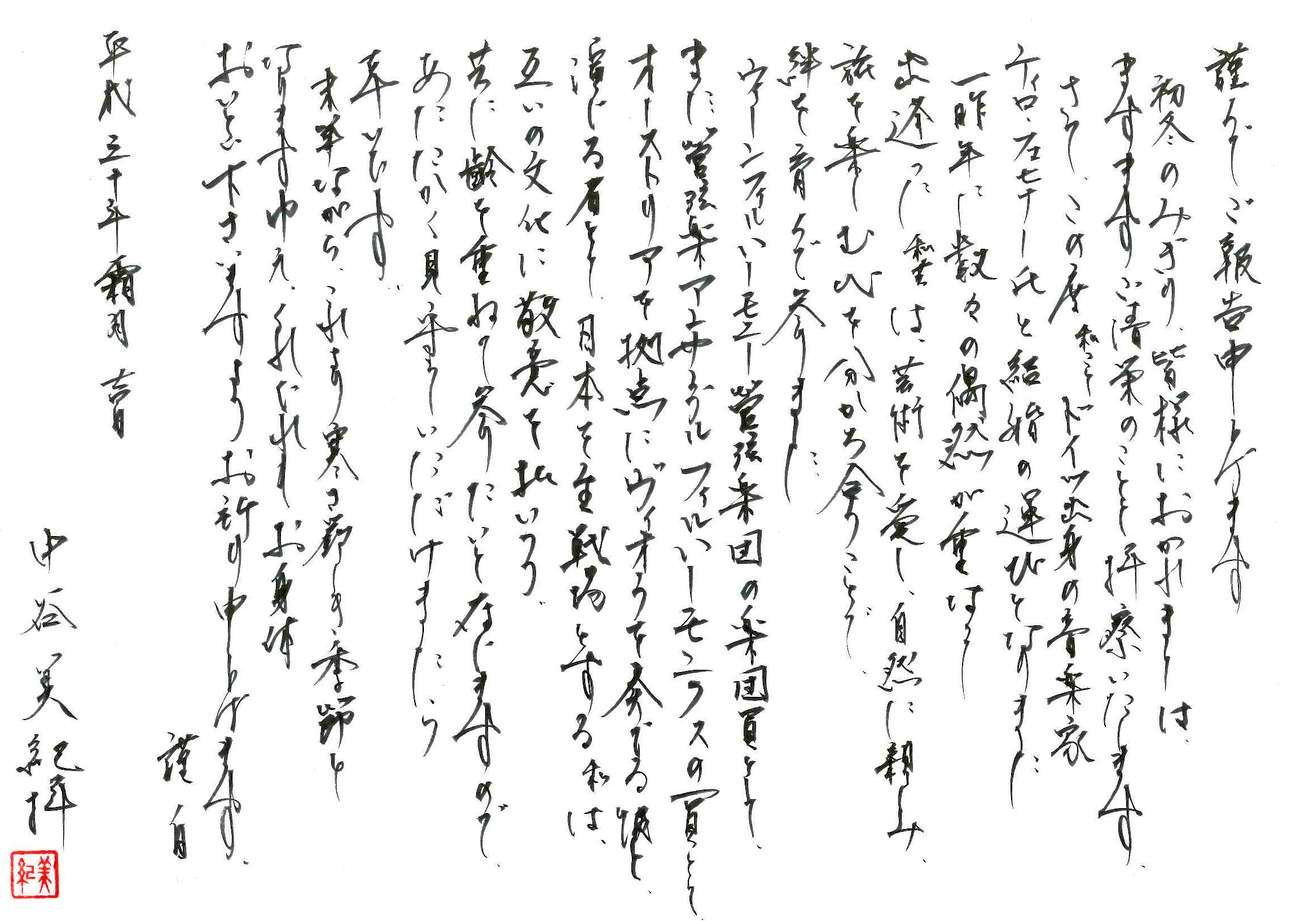 謹んでご報告申し上げます
初冬のみぎり、皆様におかれましては、
ますますご清栄のことと拝察いたします。
さて、この度 私こと ドイツ出身の音楽家
ティロ・フェヒナー氏と結婚の運びとなりました
一昨年に数々の偶然が重なって
出逢った私共は、芸術を愛し、自然に親しみ、
旅を楽しむ心を分かち合うことで、
絆を育んで参りました。
ヴィーンフィルハーモニー管弦楽団の楽団員として、
また管弦楽アンサンブルフィルハーモニクスの一員として
オーストリアを拠点にヴィオラを奏でる彼と、
演じる者として、日本を主戦場とする私は、
互いの文化に敬意を払いつつ、
共に齢を重ねて参りたいと存じますので、
あたたかく見守っていただけましたら
幸いです。
末筆ながら、これより寒さ厳しき季節と
なりますゆえ、くれぐれもお身体
おいとい下さいますようお祈り申し上げます。
謹白
平成三十年霜月吉日
中谷美紀拝
美紀